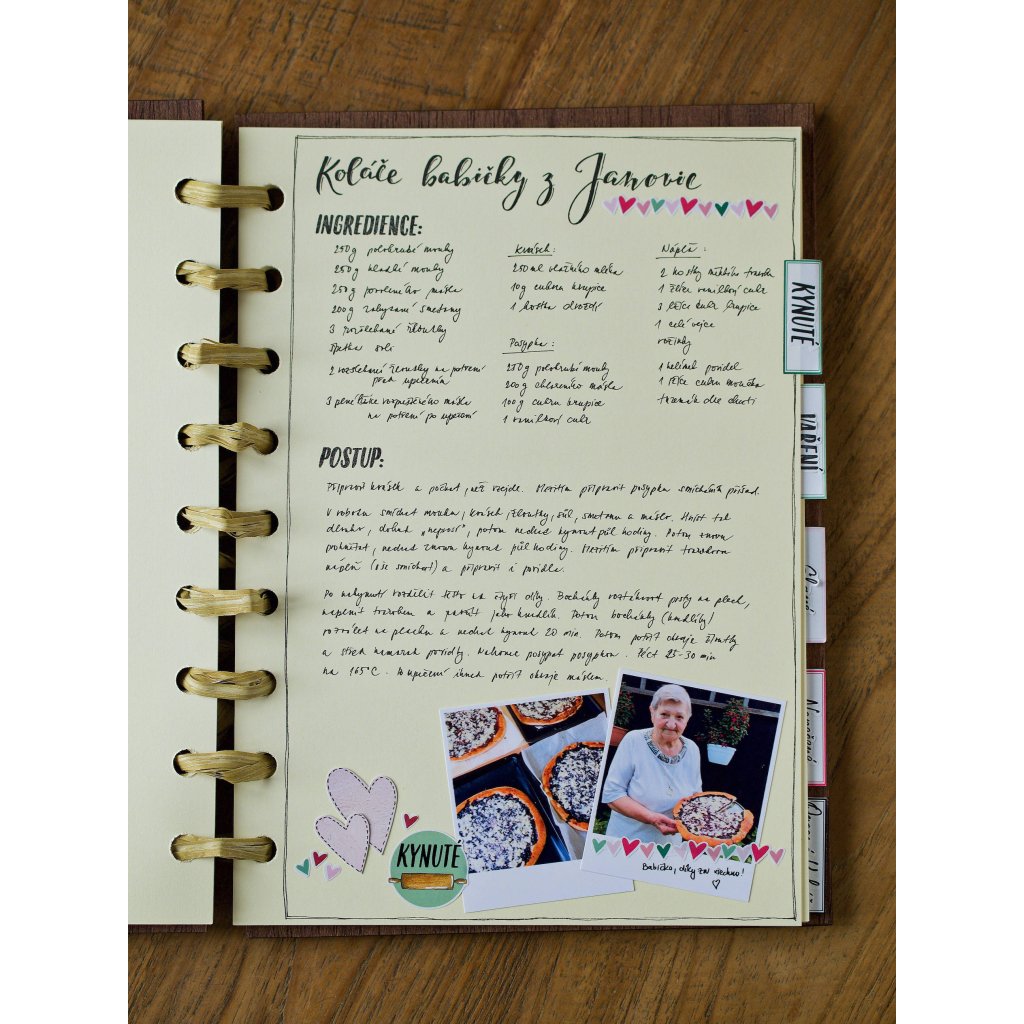 Koláče babičky z Janovic
INGREDIENCE:
250g polohrubé mouky
250g hladké mouky
250g povoleného másla
200g zakysané smetany
3 rozšlehané žloutky
špetka soli
2 rozšlehané žloutky na potření
před upečením
3 plné lžíce rozpuštěného másla
na potření po upečení
Kvásek:
250ml vlažného mléka
10g cukru krupice
1 kostka droždí
Posypka:
250g polohrubé mouky
200g chlazeného másla
100g cukru krupice
1 vanilkový cukr
Náplň:
2 kostky měkkého tvarohu
1 lžíce vanilkový cukr
3 lžíce cukr krupice
1 celé vejce
rozinky
1 kelímek povidel
1 lžíce cukru moučka
tuzemák dle chuti
POSTUP:
Připravit kvásek a počkat, než vzejde. Mezitím připravit posypku smícháním přísad.
V robotu smíchat mouku, kvásek, žloutky, sůl, smetanu a máslo. Hníst tak
dlouho, dokud „neprosí", potom nechat kynout půl hodiny. Potom znovu
prohníst, nechat znovu kynout půl hodiny. Mezitím připravit tvarohovou
náplň (vše smíchat) a připravit i povidla.
Po nakynutí rozdělit těsto na čtyři díly. Bochánky roztáhnout prsty na plech,
naplnit tvarohem a zabalit jako knedlík. Potom bochánky (knedlíky)
rozválet na plechu a nechat kynout 20 min. Potom potřít okraje žloutky
a střed namazat povidly. Nakonec posypat posypkou. Péct 25-30 min
na 165°C. Po upečení ihned potřít okraje máslem.
KYNUTÉ
VAŘENÍ
KYNUTÉ
Babičko, díky za všechno!